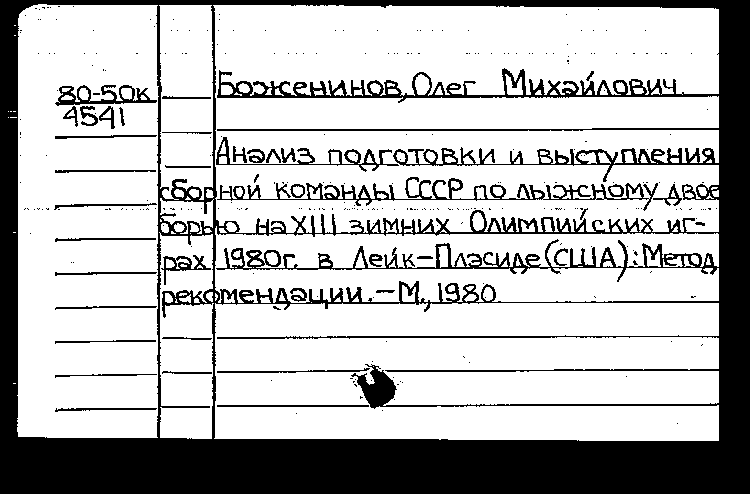 80-50к
4541
Боженинов, Олег Михайлович
Анализ подготовки и выступления
сборной команды СССР по лыжному двое
борью на XIII зимних Олимпийских иг-
рах 1980г. в Лейк-Плэсиде (США): Метод
рекомендации. - М., 1980